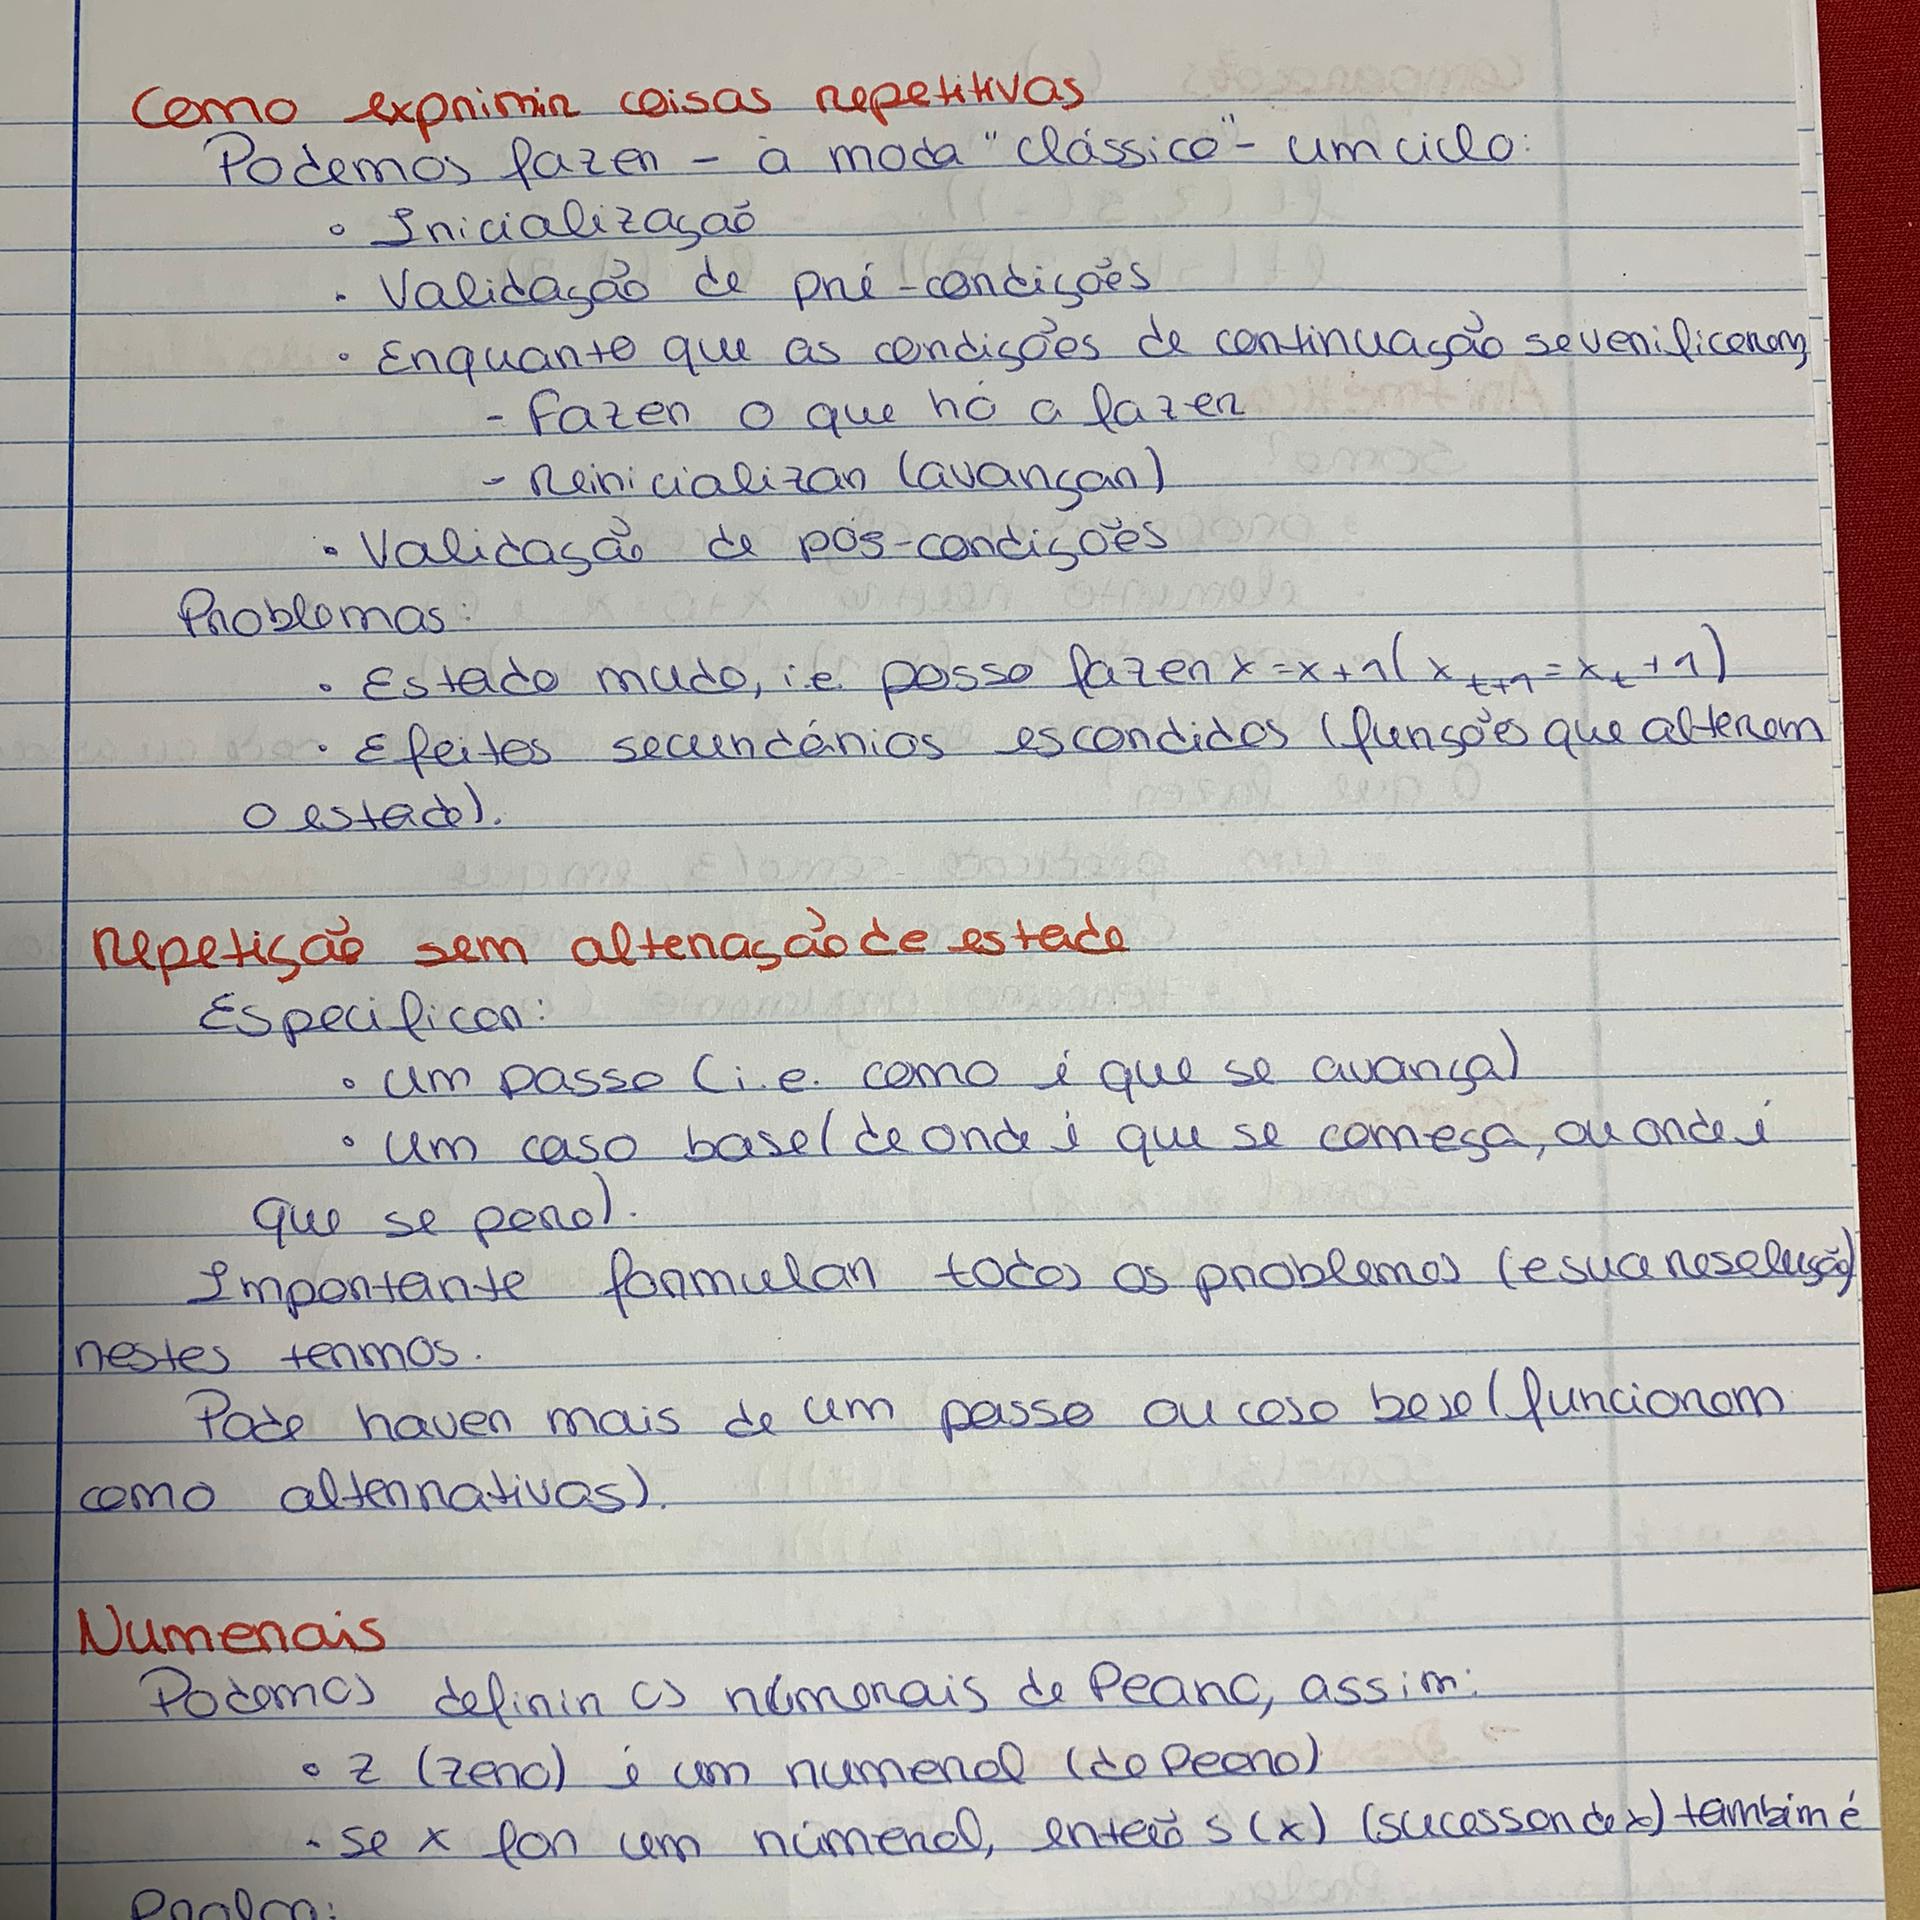 Como exprimir coisas repetitivas
Podemos fazer - à moda "clássico" - um ciclo:
• Inicialização
• Validação de pré-condições
• Enquanto que as condições de continuação se verificarem,
- Fazer o que há a fazer
- Reinicializar (avançar)
• Validação de pós-condições
Problemas:
• Estado mudo, i.e. posso fazer x=x+1 (x_{t+1}=x_t+1)
• Efeitos secundários escondidos (funções que alteram
o estado).
Repetição sem alteração de estado
Especificar:
• um passo (i.e. como é que se avança)
• um caso base (de onde é que se começa, ou onde é
que se para).
Importante formular todos os problemas (e sua resolução)
nestes termos.
Pode haver mais de um passo ou caso base (funcionam
como alternativas).
Numerais
Podemos definir os númerais de Peano, assim:
• z (zero) é um numeral (de Peano)
• se x for um númeral, então s(x) (sucessor de x) também é
Prolog: